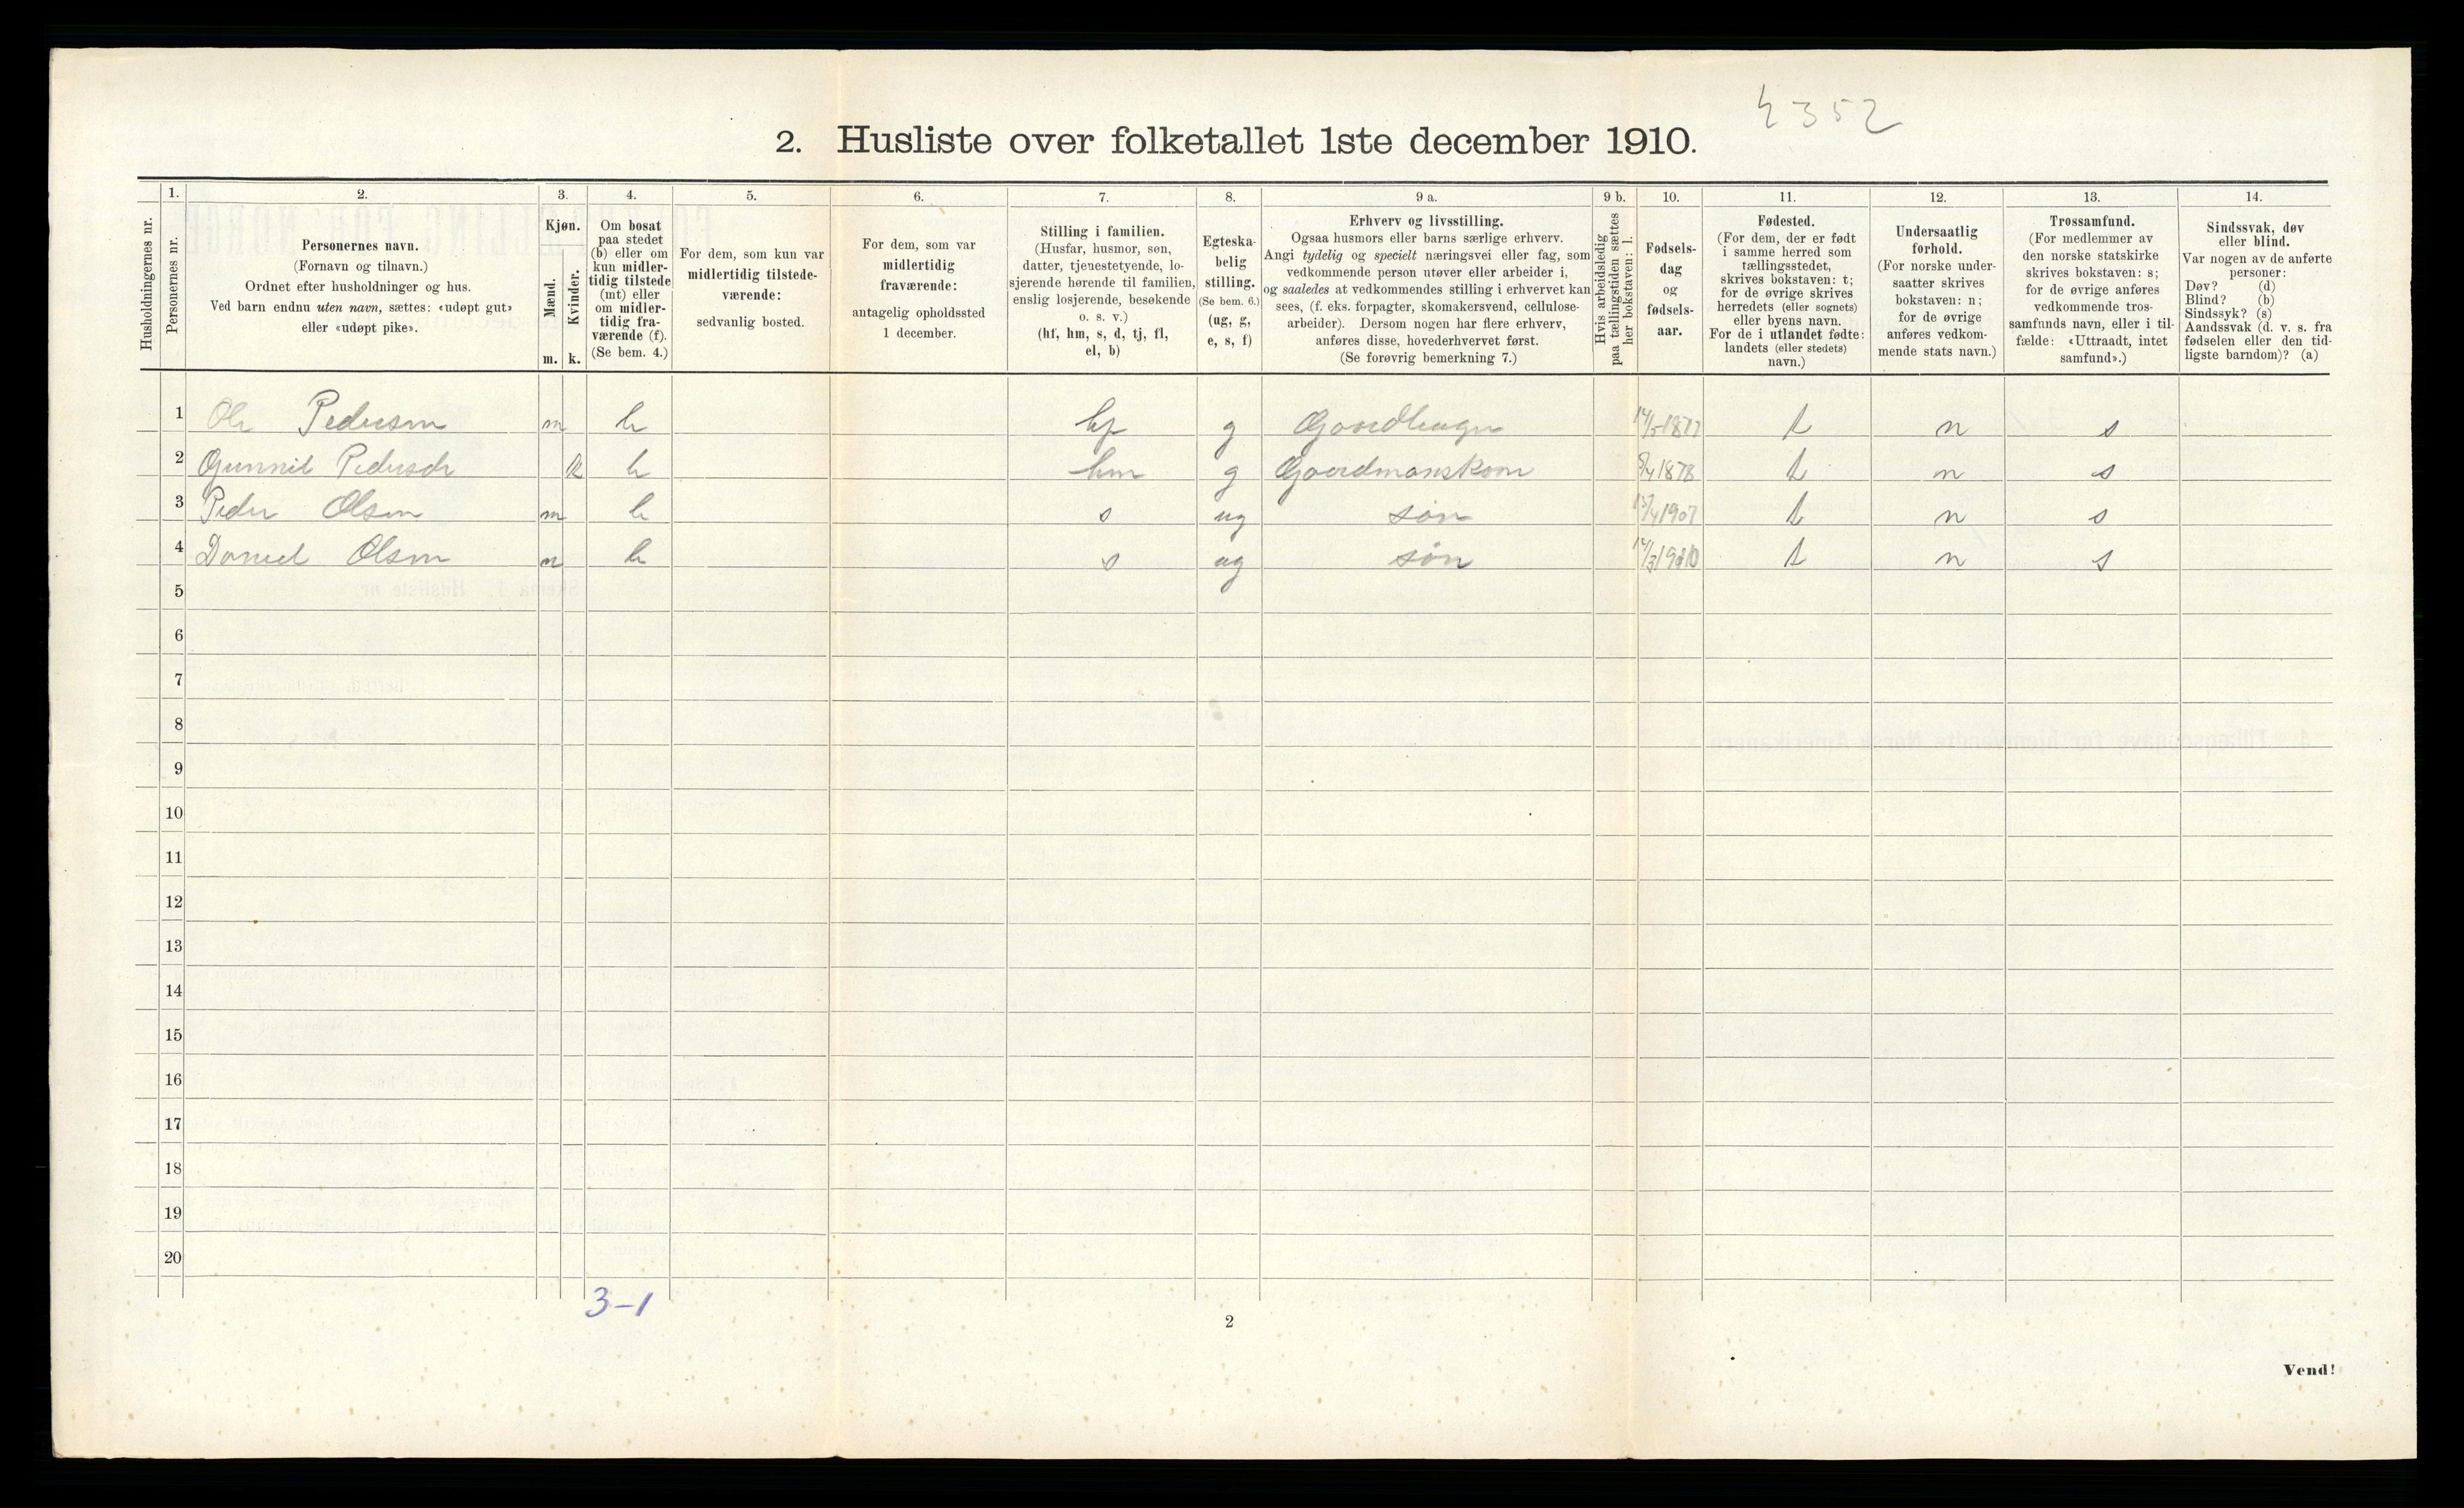 2352
2. Husliste over folketallet 1ste december 1910.
Husholdningernes nr.
1.
Personernes nr.
2.
Personernes navn.
(Fornavn og tilnavn.)
Ordnet efter husholdninger og hus.
Ved barn endnu uten navn, sættes: «udøpt gut»
eller «udøpt pike».
3.
Kjøn.
Mænd.
Kvinder.
m. k.
4.
Om bosat
paa stedet
(b) eller om
kun midler-
tidig tilstede
(mt) eller
om midler-
tidig fra-
værende (f).
(Se bem. 4.)
5.
For dem, som kun var
midlertidig tilstede-
værende:
sedvanlig bosted.
6.
For dem, som var
midlertidig
fraværende:
antagelig opholdssted
1 december.
7.
Stilling i familien.
(Husfar, husmor, søn,
datter, tjenestetyende, lo-
sjerende hørende til familien,
enslig losjerende, besøkende
o. s. v.)
(hf, hm, s, d, tj, fl,
el, b)
8.
Egteska-
belig
stilling.
(Se bem. 6.)
(ug, g,
e, s, f)
9 a.
Erhverv og livsstilling.
Ogsaa husmors eller barns særlige erhverv.
Angi tydelig og specielt næringsvei eller fag, som
vedkommende person utøver eller arbeider i,
og saaledes at vedkommendes stilling i erhvervet kan
sees, (f. eks. forpagter, skomakersvend, cellulose-
arbeider). Dersom nogen har flere erhverv,
anføres disse, hovederhvervet først.
(Se forøvrig bemerkning 7.)
9 b.
Hvis arbeidsledig
paa tællingstiden sættes
her bokstaven: l.
10.
Fødsels-
dag
og
fødsels-
aar.
11.
Fødested.
(For dem, der er født
i samme herred som
tællingsstedet,
skrives bokstaven: t;
for de øvrige skrives
herredets (eller sognets)
eller byens navn.
For de i utlandet fødte:
landets (eller stedets)
navn.)
12.
Undersaatlig
forhold.
(For norske under-
saatter skrives
bokstaven: n;
for de øvrige
anføres vedkom-
mende stats navn.)
13.
Trossamfund.
(For medlemmer av
den norske statskirke
skrives bokstaven: s;
for de øvrige anføres
vedkommende tros-
samfunds navn, eller i til-
fælde: «Uttraadt, intet
samfund».)
14.
Sindssvak, døv
eller blind.
Var nogen av de anførte
personer:
Døv? (d)
Blind? (b)
Sindssyk? (s)
Aandssvak (d. v. s. fra
fødselen eller den tid-
ligste barndom)? (a)
1 Ole Pedersen m b hf g Gaardbruger 14/5 1877 t n s
2 Gunnil Pedersdr k b hm g Gaardmanskone 8/4 1878 t n s
3 Peder Olsen m b s ug søn 13/4 1907 t n s
4 Daniel Olsen m b s ug søn 14/3 1910 t n s
5
6
7
8
9
10
11
12
13
14
15
16
17
18
19
20
3-1
2
Vend!